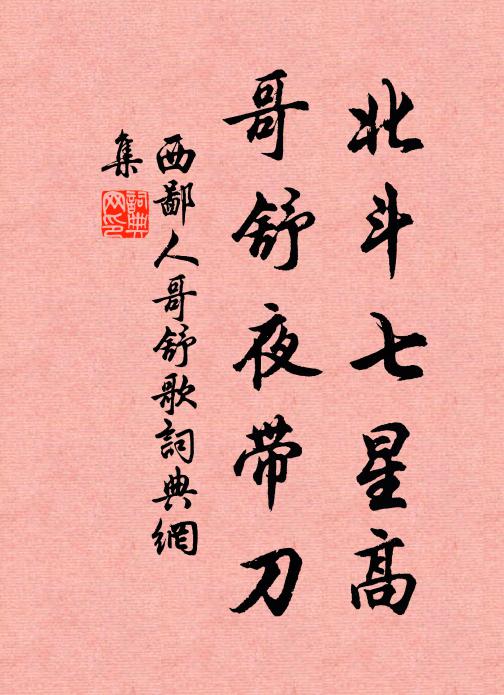 北斗七星高
哥舒夜带刀
西鄙人哥舒歌詞典網
集
詞典网印